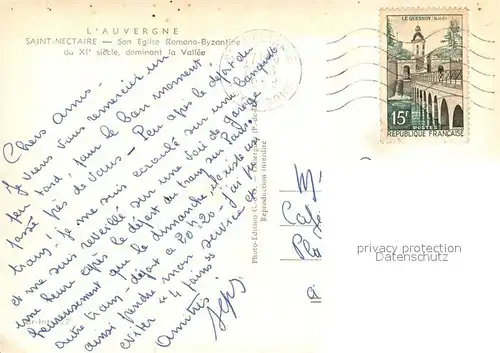 L'AUVERGNE
SAINT-NECTAIRE — Son Eglise Romano-Byzantine
du XIe siècle, dominant la Vallée
LE QUESNOY (Nord)
15F
POSTES
REPUBLIQUE FRANÇAISE
Chers Amis.
Je viens vous remercier un
peu tard pour le bon moment
passé près de vous - Peu après le départ du
train, je me suis écroulé sur une banquette
et me suis réveillé sur une voie de garage
une heure après le départ du train sur Paris.
heureusement que le dimanche, existe un
autre train, départ à 20h-20. j'ai pu
ainsi prendre mon service et
éviter "4 jours"
Amitiés
Photo-Edition
Reproduction interdite
M
Caf
Pla
à
privacy protection
Datenschutz